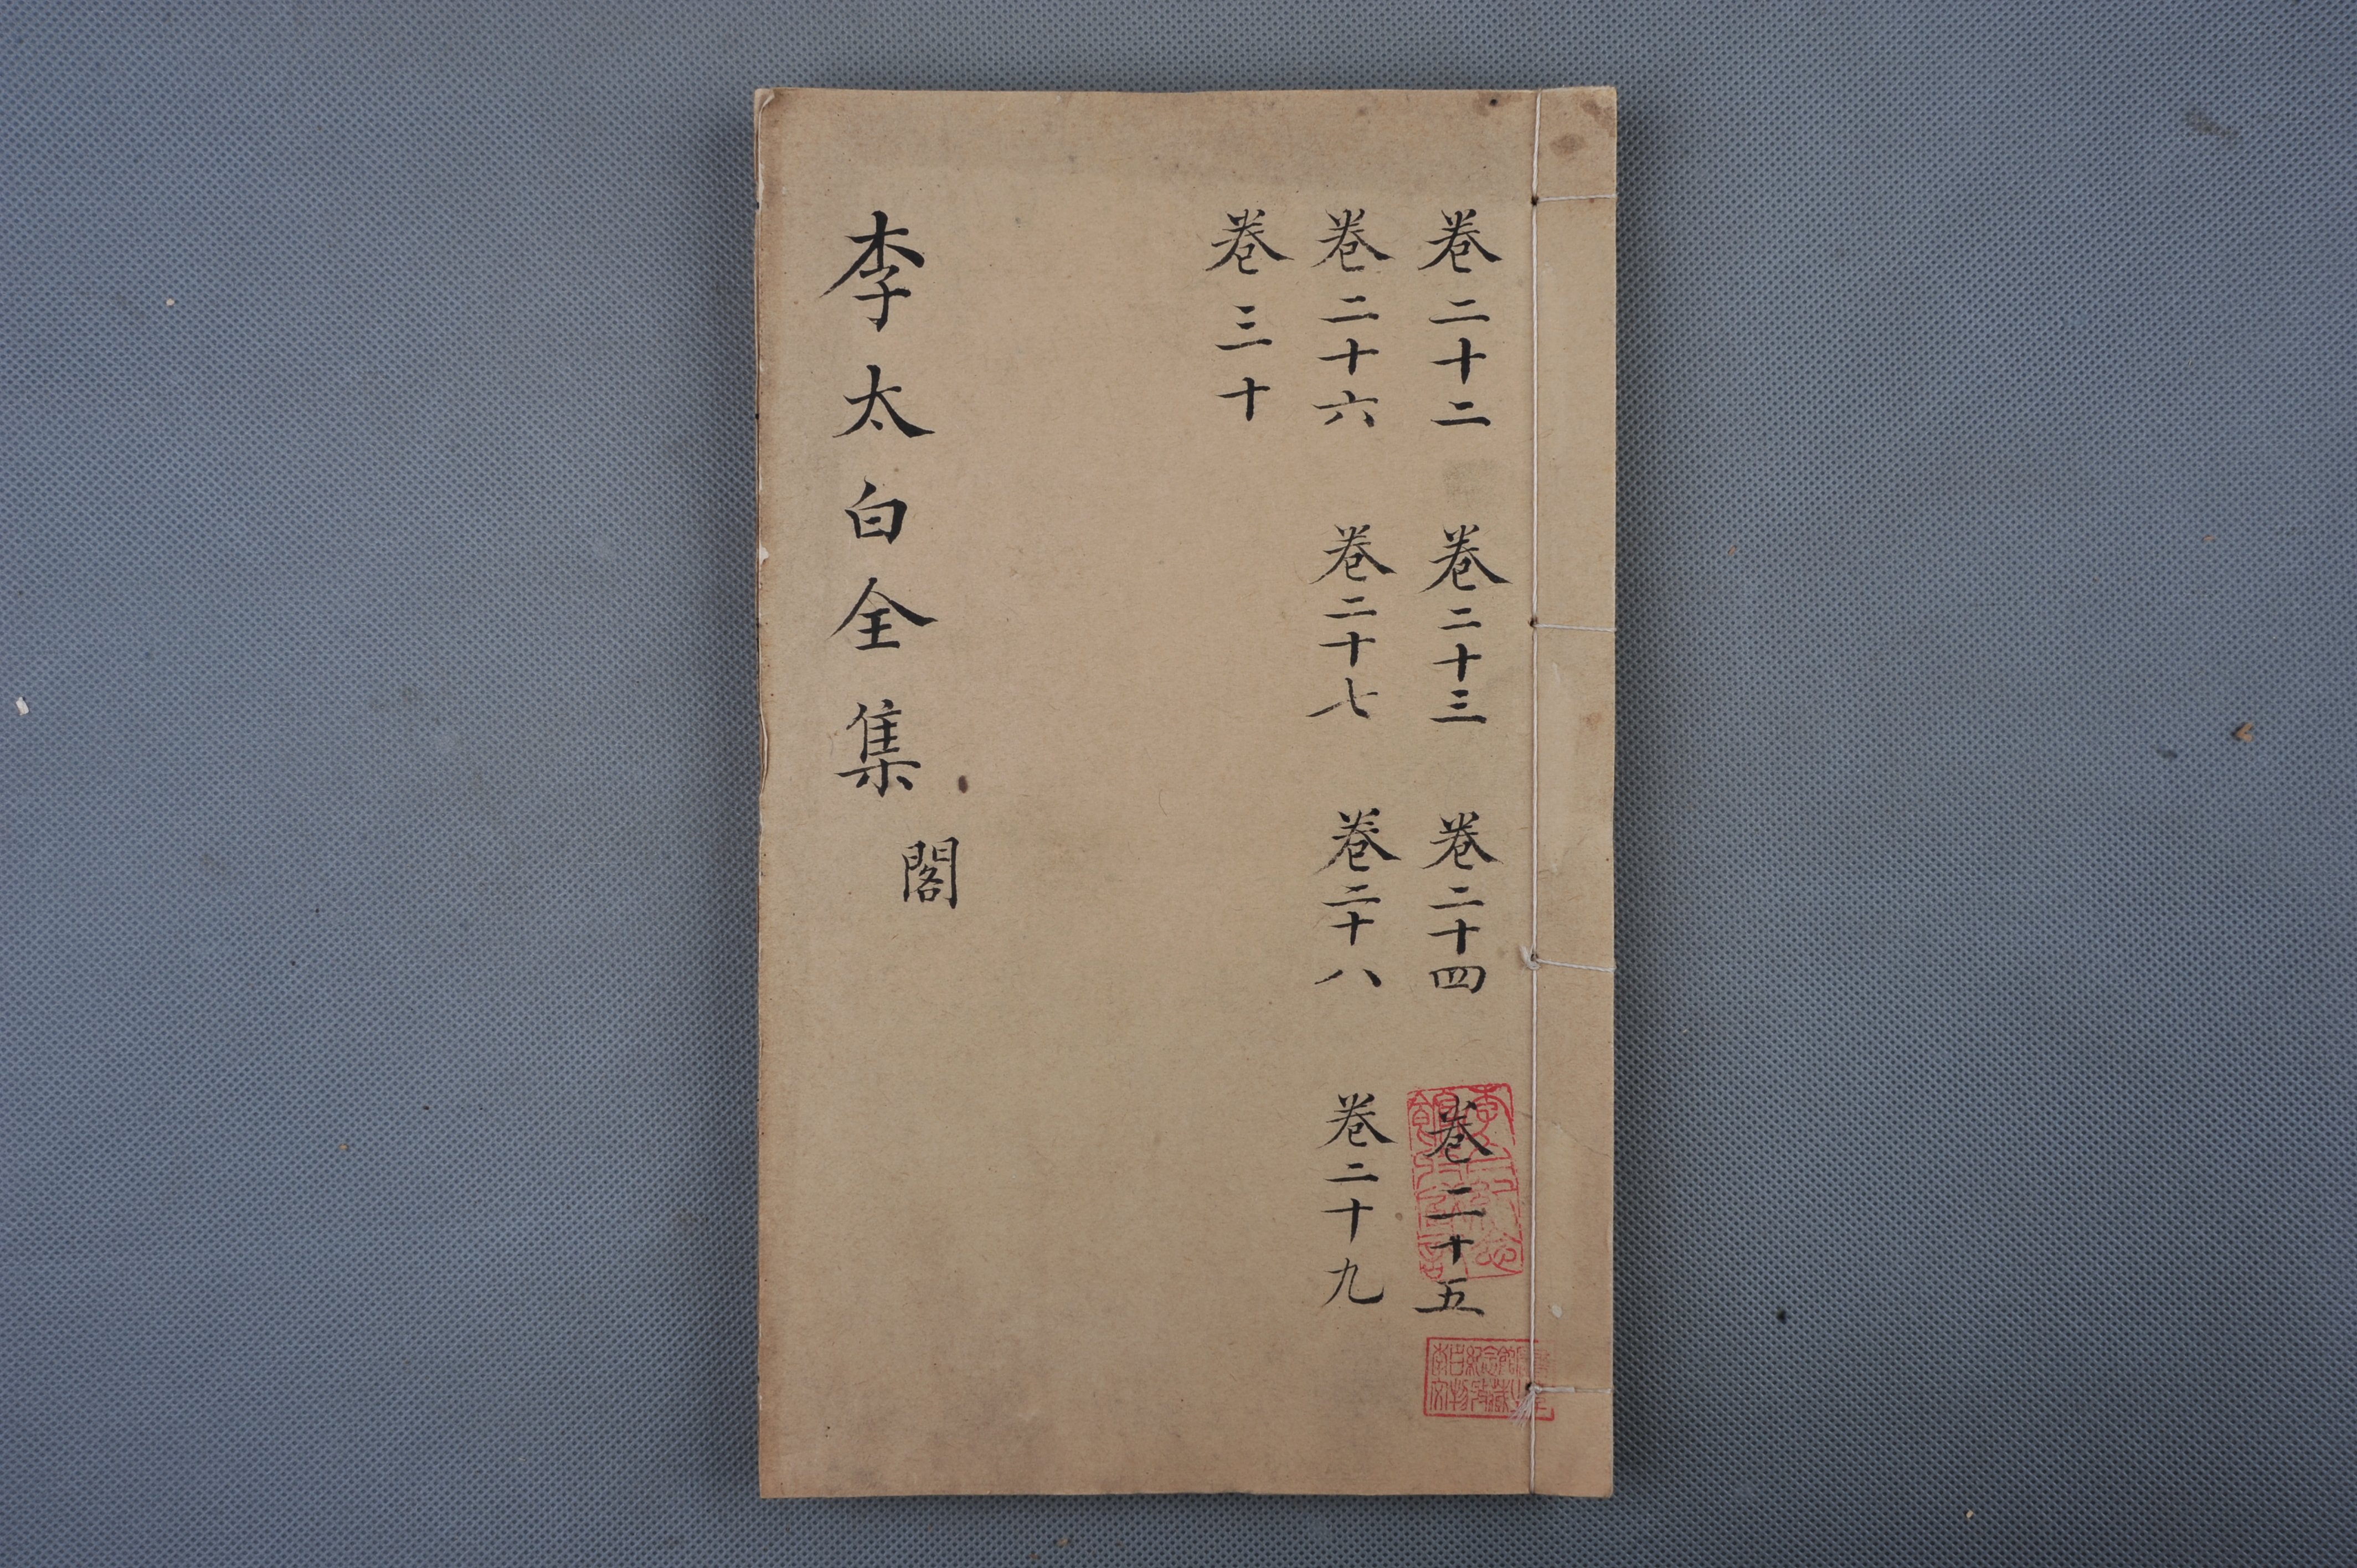 卷二十二 卷二十三 卷二十四 卷二十五
卷二十六 卷二十七 卷二十八 卷二十九
卷三十
李太白全集
閣
李白紀念館
文物收藏